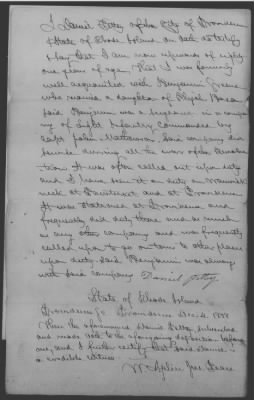 I Daniel Petty of the City of Providence
State of Rhode Island on oath do testify
& say that I am now upwards of eighty
one years of age. That I was formerly
well acquainted with Benjamin Greene
who married a daughter of
said Benjamin was a in a compa
ny of Light Infantry Commanded by
Capt John Mathewson. Said company did
duty during all the war of the Revolu
tion It was often called out upon duty
and I have been it on duty at Warwick
neck at Pawtuxet and at Providence
It was stationed at Providence and
frequently did duty there and as much
as any other company and was frequently
called upon to go on tours to other places
upon duty. Said Benjamin was always
with said company. Daniel Petty
State of Rhode Island
Providence Sc. Providence Dec 4. 1838
Then the aforenamed Daniel Petty subscribed
and made oath to the aforegoing deposition before
me, and I further certify that said Daniel is
a credible witness
W Aplin Jus. Peace